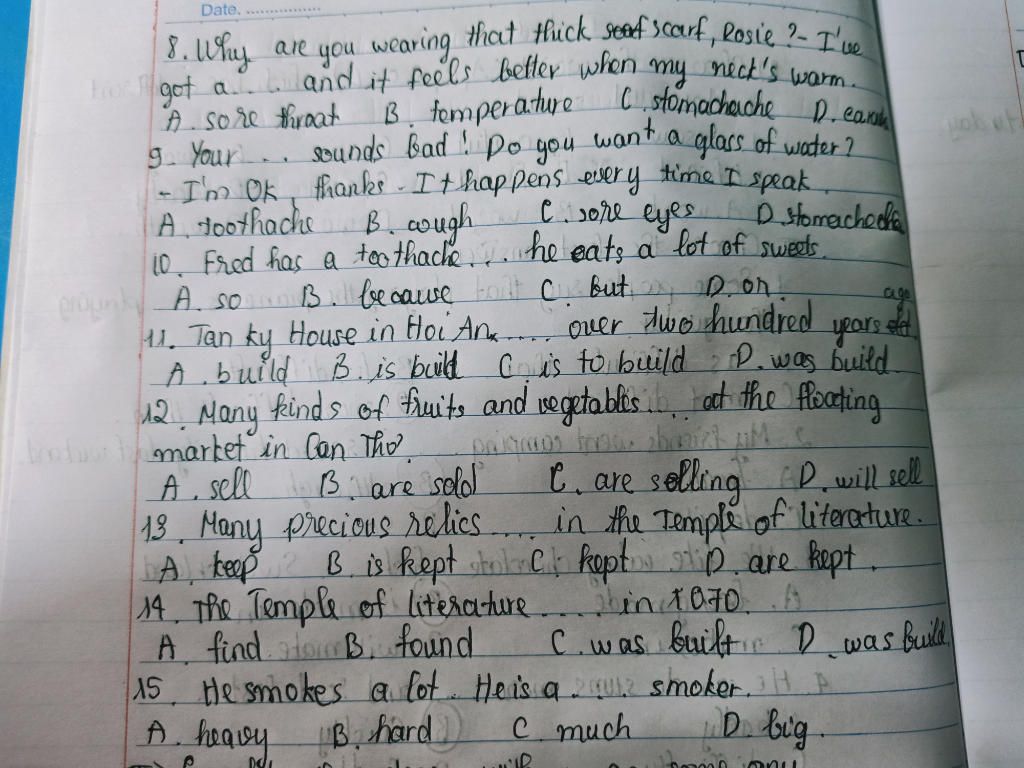 Date. ................
8. Why are you wearing that thick scarf, Rosie ? - I've
got a... and it feels better when my neck's warm.
A. sore throat B. temperature C. stomachache D.
9. Your ... sounds bad ! Do you want a glass of water ?
- I'm OK, thanks - It happens every time I speak.
A. toothache B. cough C. sore eyes D. stomachache
10. Fred has a toothache... he eats a lot of sweets.
A. so B. because C. but D. or
11. Tan ky House in Hoi An .... over two hundred years ago
A. build B. is build C. is to build D. was build
12. Many kinds of fruits and vegetables ... at the floating
market in Can Tho.
A. sell B. are sold C. are selling D. will sell
13. Many precious relics .... in the Temple of literature.
A. keep B. is kept C. kept D. are kept.
14. The Temple of literature .... in 1070.
A. find B. found C. was built D. was build
15. He smokes a lot. He is a ... smoker.
A. heavy B. hard C. much D. big.